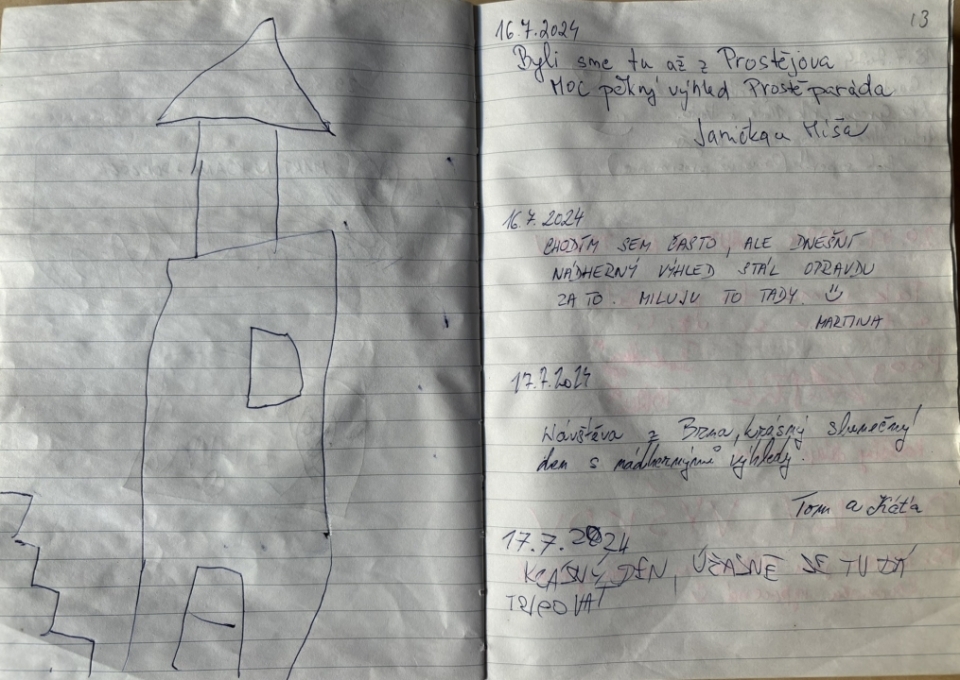 13
16.7.2024
Byli sme tu až z Prostějova
MOC pěkný výhled Prostě paráda
Janička a Míša
16.7.2024
CHODÍM SEM ČASTO, ALE DNEŠNÍ
NÁDHERNÝ VÝHLED STÁL OPRAVDU
ZA TO. MILUJU TO TADY.
MARTINA
17.7.2024
Návštěva z Brna, krásný slunečný
den s nádhernými výhledy.
Tom a Káťa
17.7.2024
KRÁSNÝ DEN, ÚŽASNĚ SE TU DÁ
TRIPOVAT